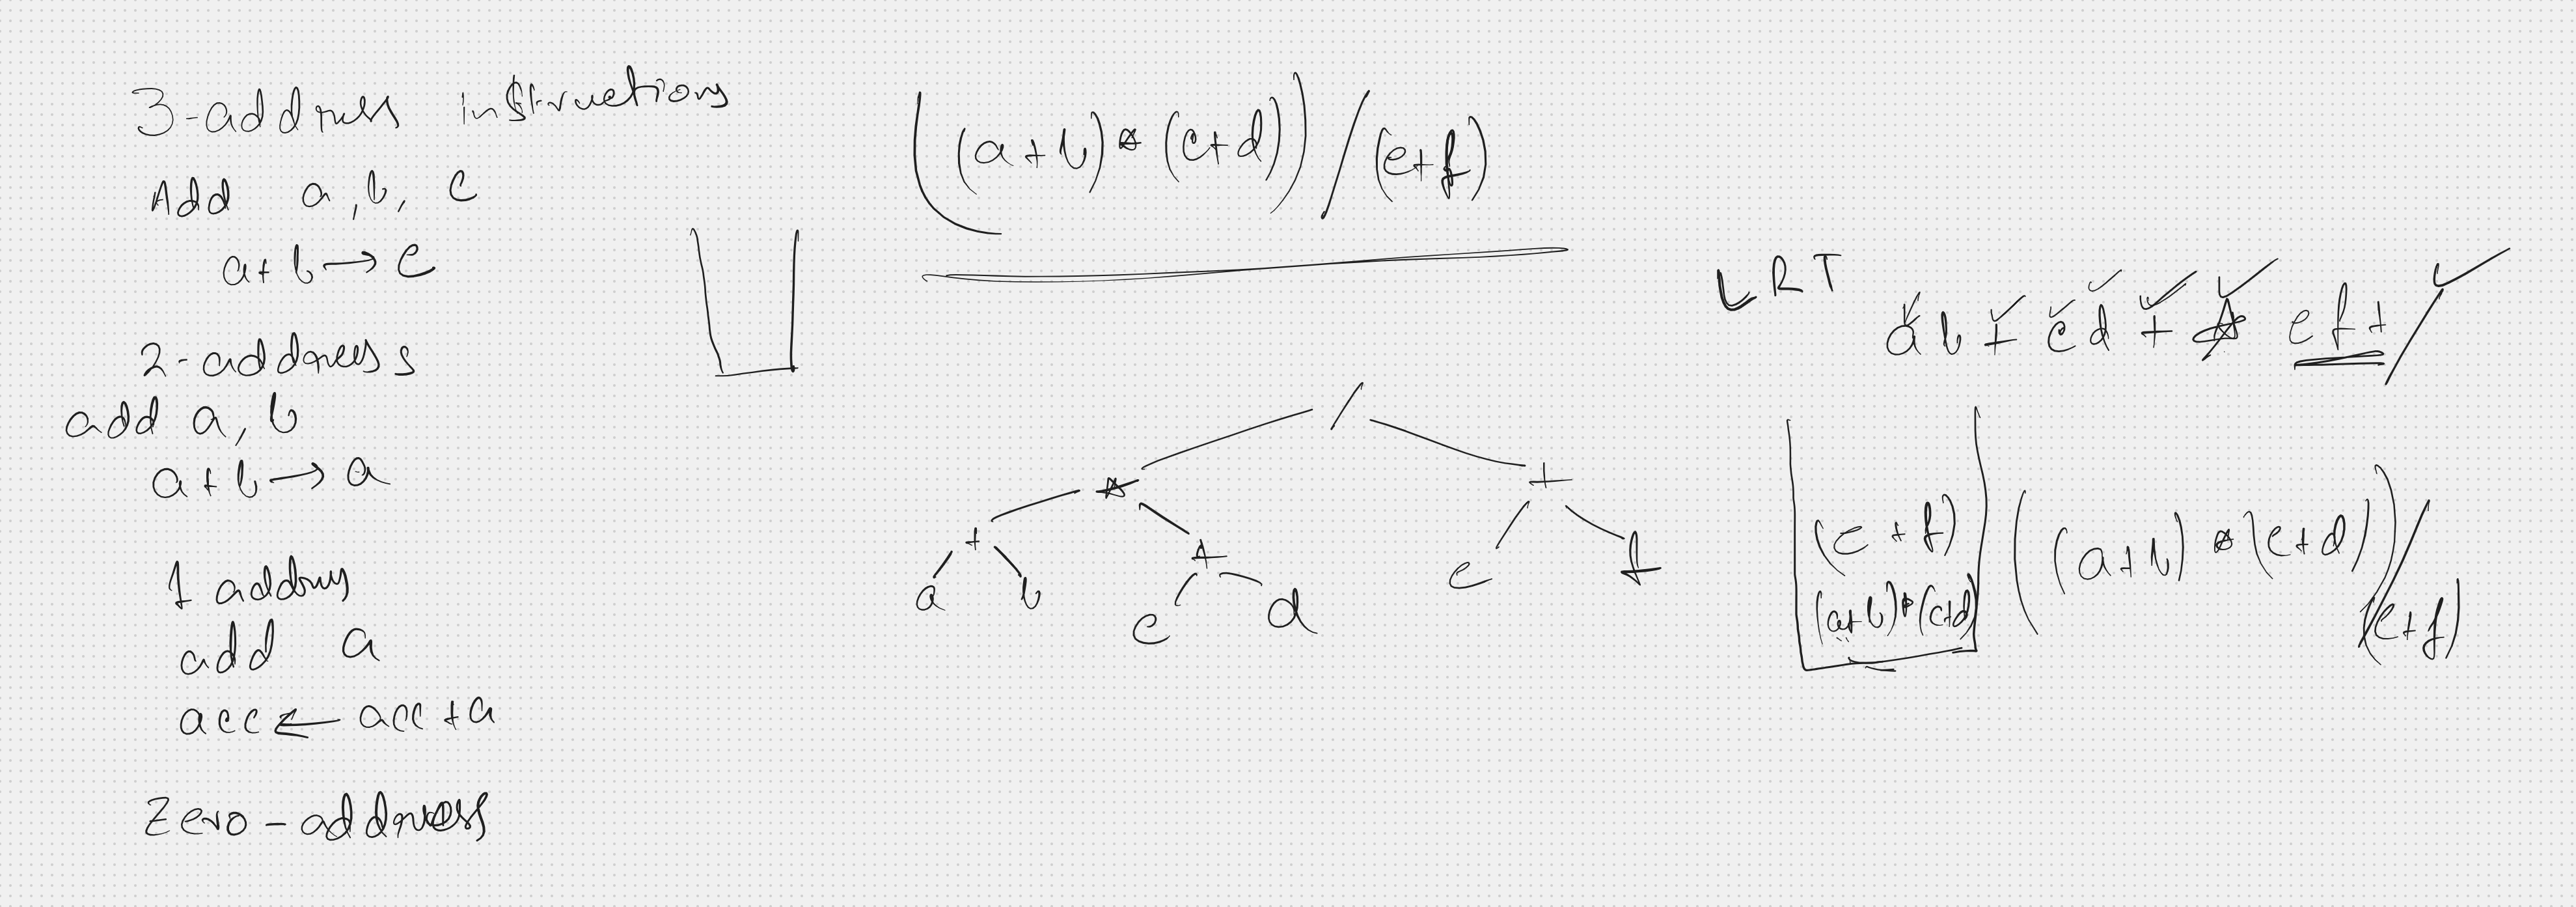 3-address instructions
Add a, b, c
a+b→c
2-address
add a, b
a+b→a
1 address
add a
acc ← acc+a
Zero-address
((a+b)*(c+d))/(e+f)
/
* +
+ + e f
a b c d
LRT
ab+cd+*ef+/
(e+f)
(a+b)*(c+d)
((a+b)*(c+d))/
(e+f)